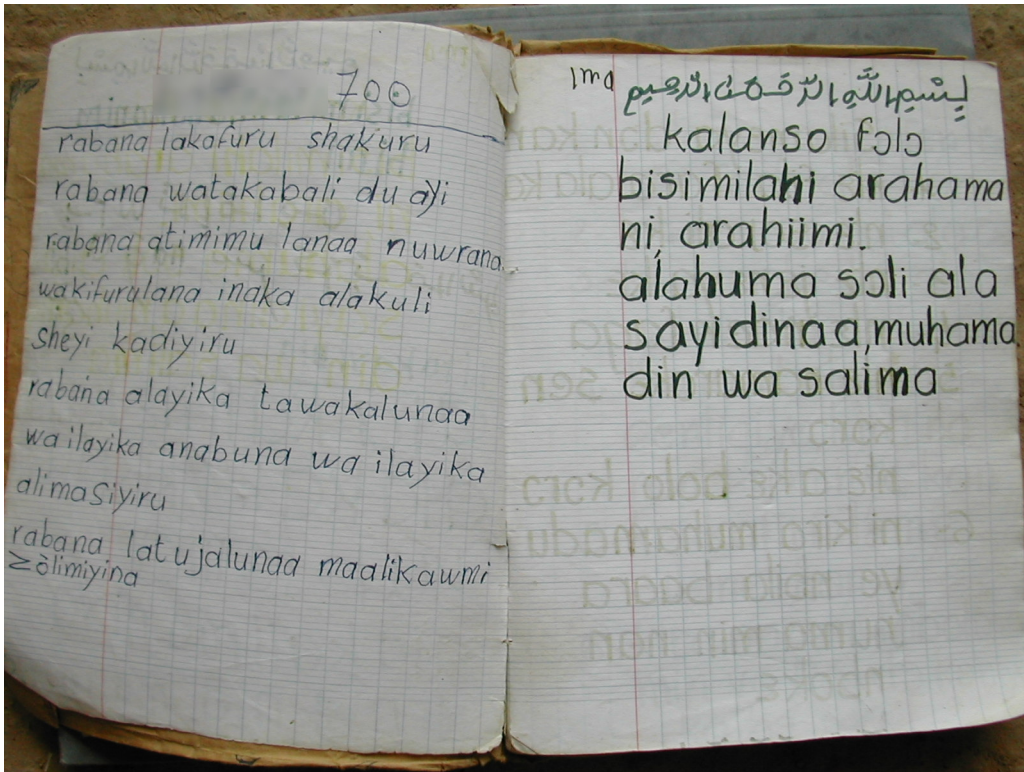 700
rabana lakafuru shakuru
rabana watakabali du ayi
rabana atimimu lanaa nuwrana
wakifurulana inaka alakuli
sheyi kadiyiru
rabana alayika tawakalunaa
wa ilayika anabuna wa ilayika
alimasiyiru
rabana latujalunaa maalikawmi
zòlimiyina
1md
بِسْمِ اللَّهِ الرَّحْمَٰنِ الرَّحِيمِ
kalanso fɔlɔ
bisimilahi arahama
ni, arahiimi.
alahuma sɔli ala
sayidinaa, muhama
din wa salima